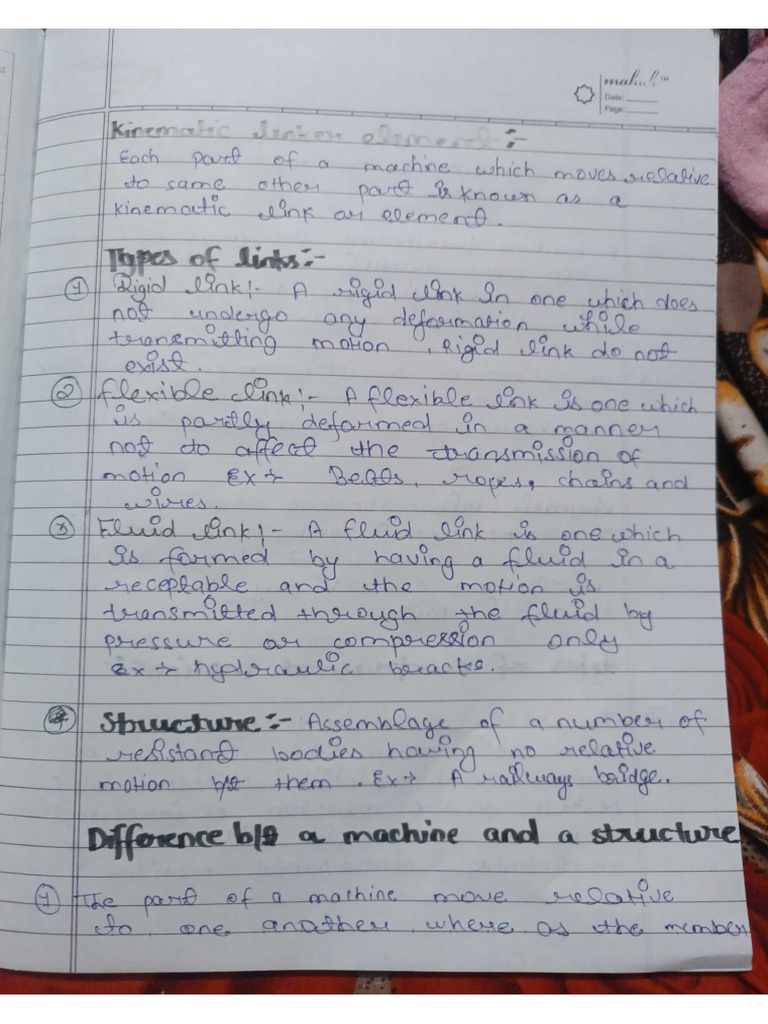 Date:
Page:
Kinematic linker element :-
Each part of a machine which moves relative
to same other part is known as a
kinematic link or element.
Types of links:-
① Rigid link!- A rigid link in one which does
not undergo any deformation while
transmitting motion, Rigid link do not
exist.
② flexible link!- A flexible link is one which
is partly deformed in a manner
not to affect the transmission of
motion Ex→ Belts, ropes, chains and
wires.
③ Fluid link!- A fluid link is one which
is formed by having a fluid in a
receptable and the motion is
transmitted through the fluid by
pressure or compression only
Ex→ hydraulic bracks.
④ Structure:- Assemblage of a number of
resistant bodies having no relative
motion b/t them. Ex→ A railways bridge.
Difference b/t a machine and a structure
① The part of a machine move relative
to one another where as the member